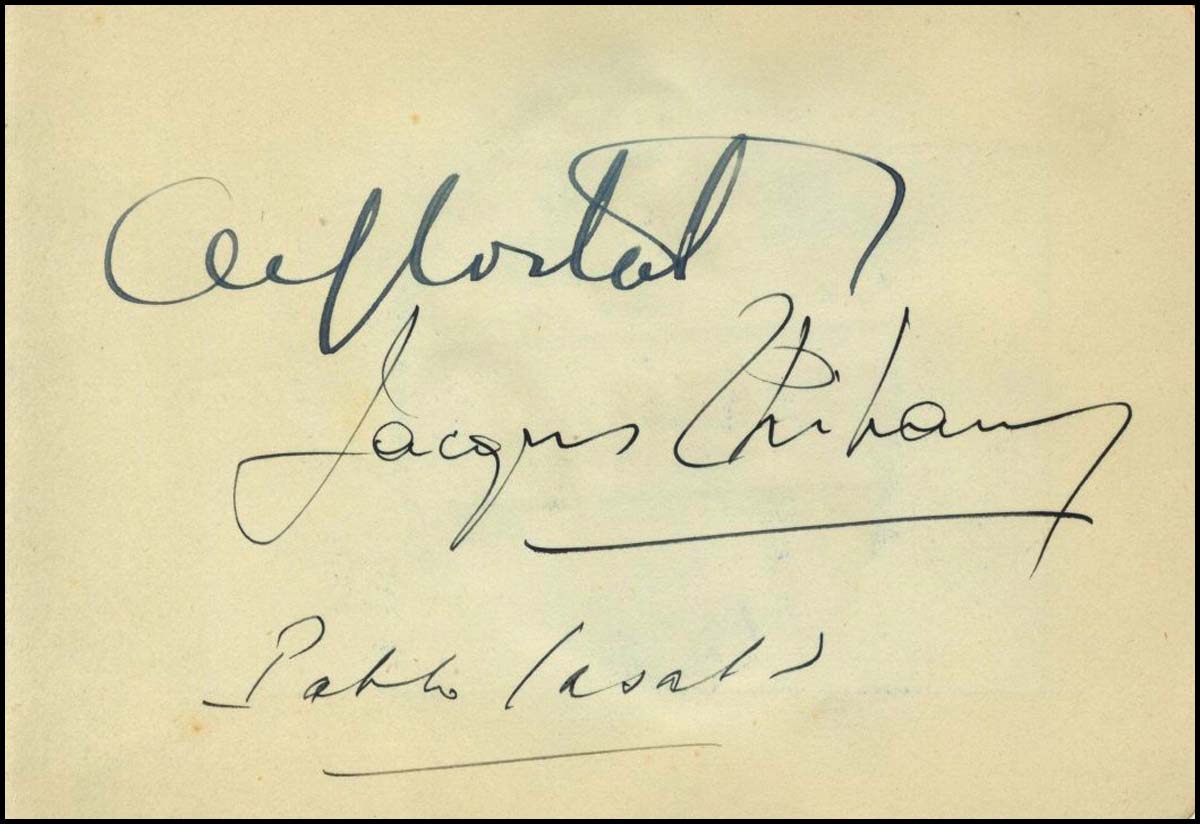 Alf Cortot
Jacques Thibaud
Pablo Casals